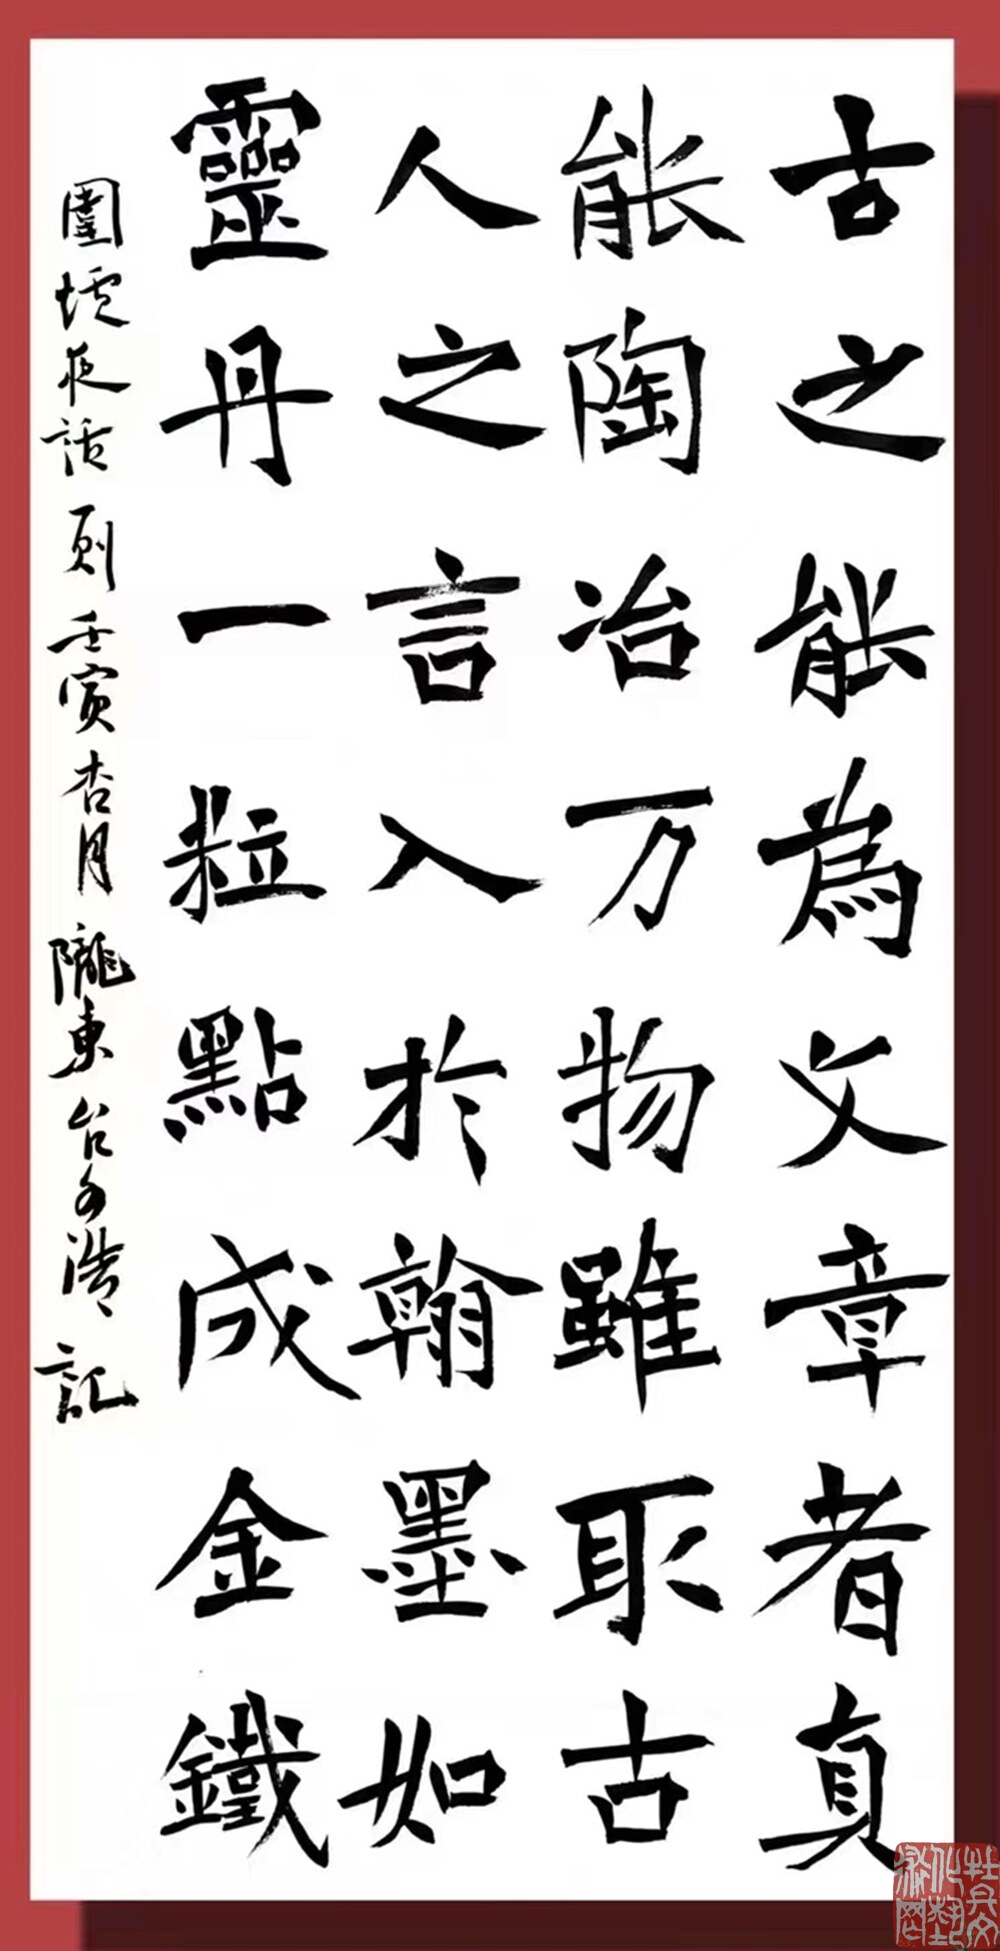 古之能為文章者真
能陶冶万物雖取古
人之言入於翰墨如
靈丹一粒點成金鐵
圍 夜話 则 壬寅杏月 隴東 浩 記